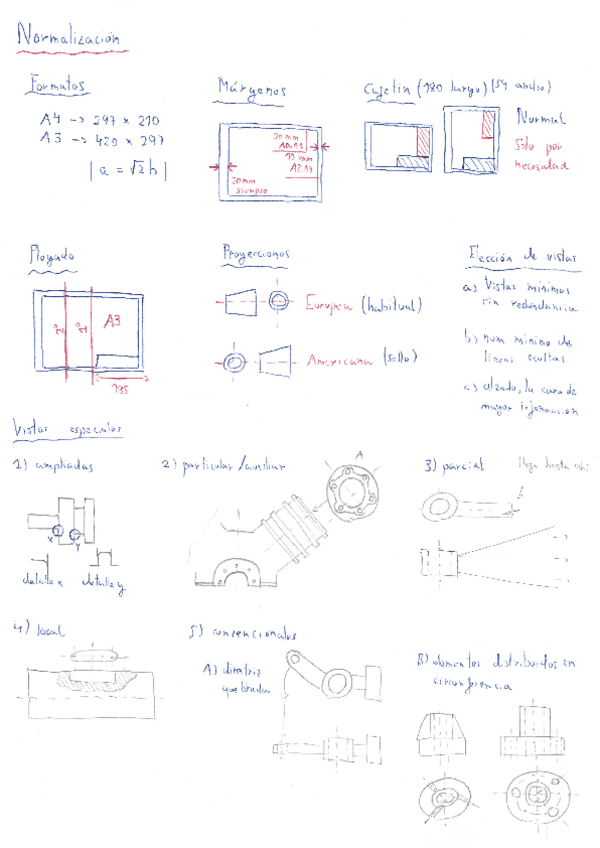 Normalización
Formatos
A4 -> 297 x 210
A3 -> 420 x 297
| a = √2 h |
Márgenes
20 mm
A0,A1
10 mm
A2,A4
20mm
siempre
Cajetín (180 largo) (54 ancho)
Normal
Sólo por
necesidad
Plegado
2º
1º
A3
185
Proyecciones
Europea (habitual)
Americana (sello)
Elección de vistas
a) Vistas mínimas
sin redundancia
b) num mínimo de
líneas ocultas
c) alzado, la cara de
mayor información
Vistas especiales
1) ampliadas
X
Y
detalle x
detalle y
2) particular/auxiliar
A
3) parcial
llega hasta ahí
4) local
5) convencionales
A) directriz
quebrada
B) elementos distribuidos en
circunferencia